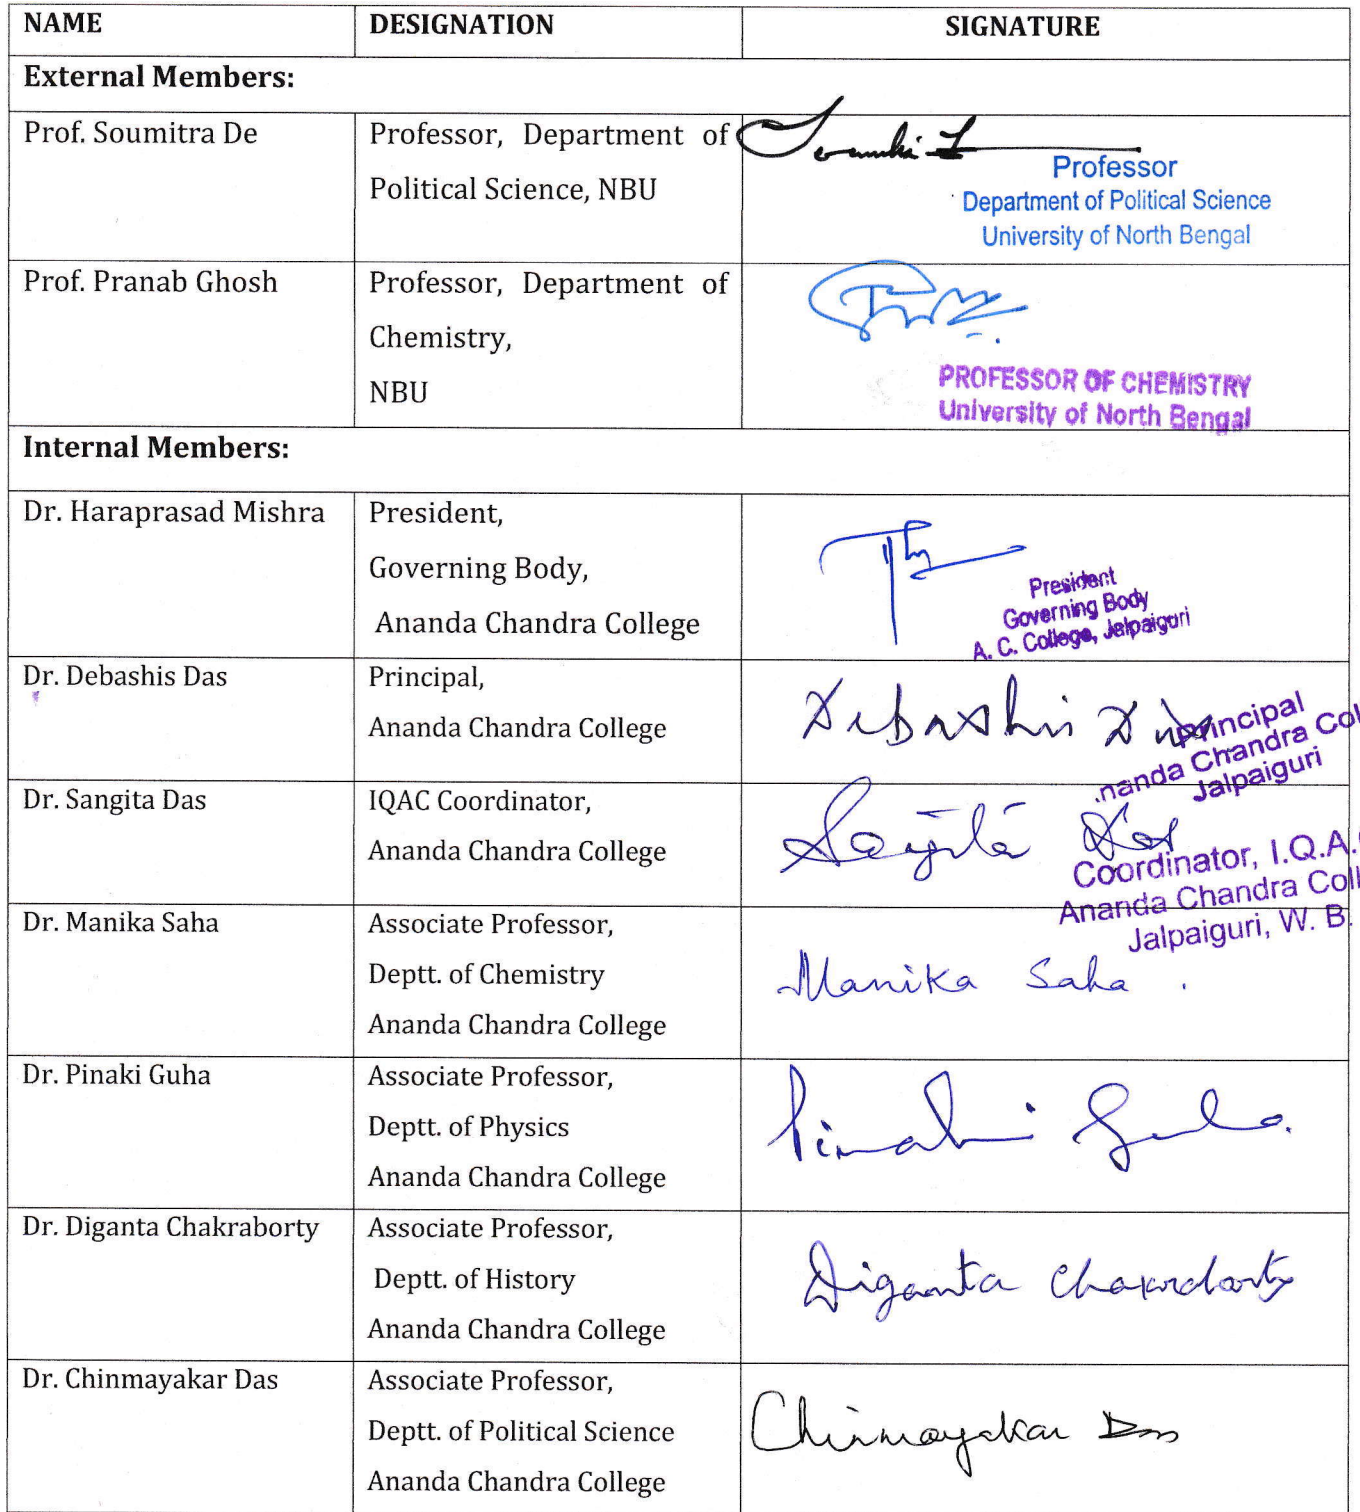 NAME DESIGNATION SIGNATURE
External Members:
Prof. Soumitra De
Professor, Department of
Political Science, NBU
Professor
Department of Political Science
University of North Bengal
Prof. Pranab Ghosh
Professor, Department of
Chemistry,
NBU
PROFESSOR OF CHEMISTRY
University of North Bengal
Internal Members:
Dr. Haraprasad Mishra
President,
Governing Body,
Ananda Chandra College
President
Governing Body
A. C. College, Jalpaiguri
Dr. Debashis Das
Principal,
Ananda Chandra College
Debashis Das
Principal
nanda Chandra Col
Jalpaiguri
Dr. Sangita Das
IQAC Coordinator,
Ananda Chandra College
Sangita Das
Coordinator, I.Q.A.
Ananda Chandra Coll
Jalpaiguri, W. B.
Dr. Manika Saha
Associate Professor,
Deptt. of Chemistry
Ananda Chandra College
Manika Saha .
Dr. Pinaki Guha
Associate Professor,
Deptt. of Physics
Ananda Chandra College
Pinaki Guha.
Dr. Diganta Chakraborty
Associate Professor,
Deptt. of History
Ananda Chandra College
Diganta Chakraborty
Dr. Chinmayakar Das
Associate Professor,
Deptt. of Political Science
Ananda Chandra College
Chinmayakar Das